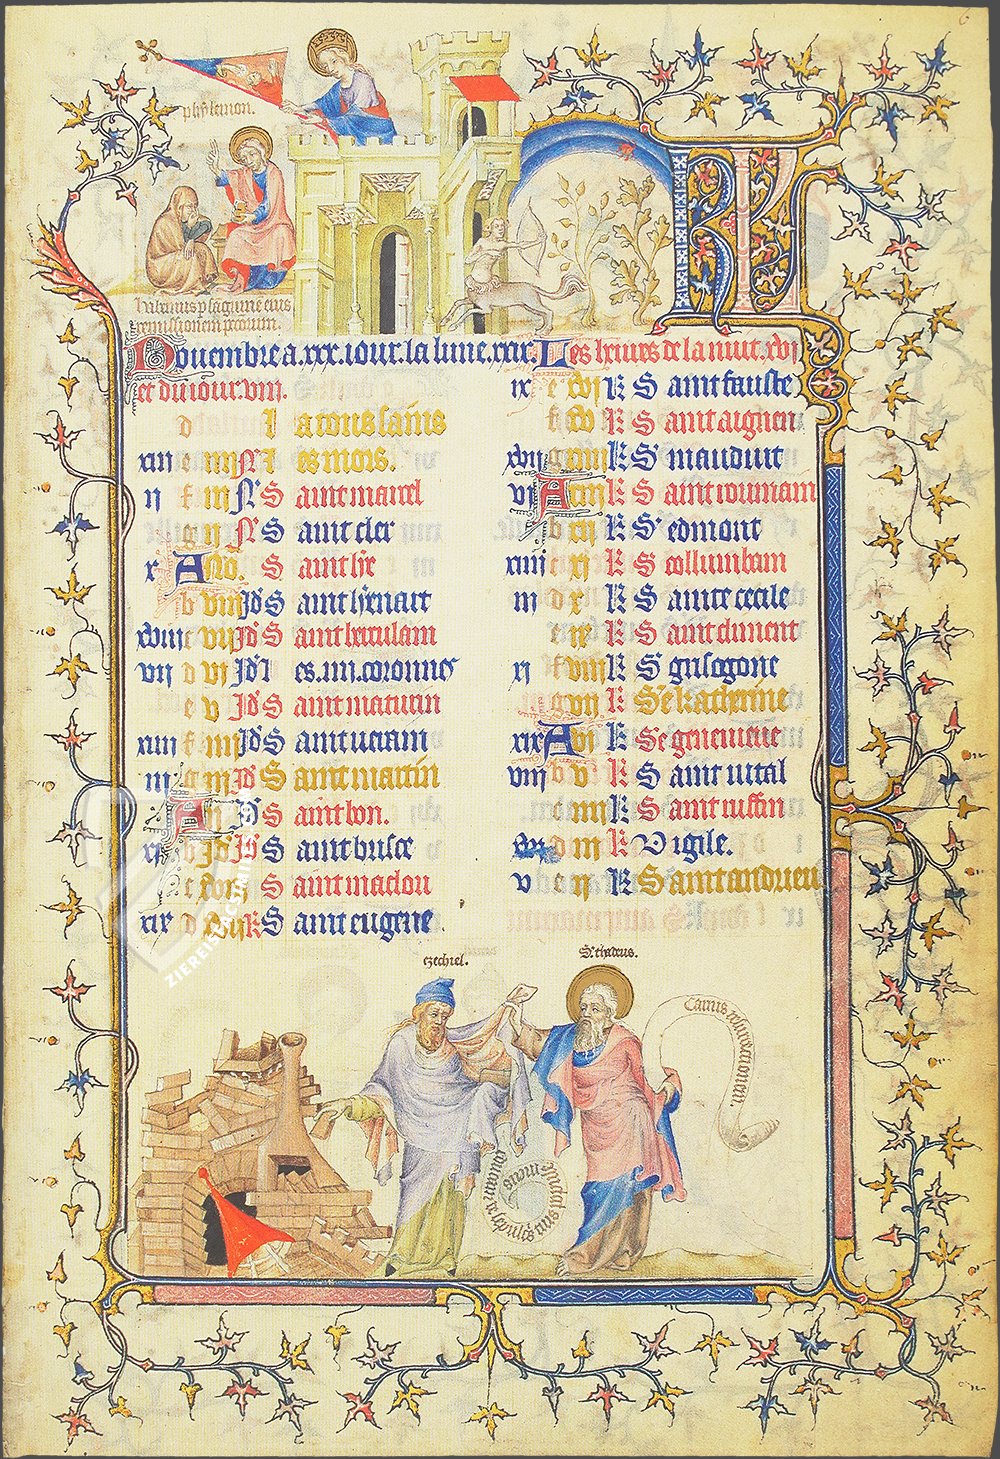 phylemon.
habemus per sanguinem eius
remissionem peccatorum.
KL
Nouembre a .xxx. iour. la lune .xxix. Les heures de la nuit .xvi
et du iour .viii.
d I a toussains
xiii e iiii N L es mors.
ii f iii N S aint marcel
g ii N S aint cler
x A No. S aint lie
b viii Id S aint lienart
xviii c vii Id S aint herculam
vii d vi Id L es .iiii. coronnes
e v Id S aint maturin
xv f iiii Id S aint veram
iiii g iii Id S aint martin
A ii Id S aint lon.
xii b Id S aint brisce
c xviii S aint maclou
xix d xvii K S aint eugene.
ix e xvi K S aint fauste
f xv K S aint aignen
xvii g xiiii K S. mauduit
vi A xiii K S aint roumam
b xii K S. edmont
xiiii c xi K S collumbam
iii d x K S ainte cecile
e ix K S aint climent
xi f viii K S. grisogone
g vii K Ste katherine
xix A vi K Se geneuieue
viii b v K S aint vital
c iiii K S aint ruffin
xvi d iii K Vigile.
v e ii K S aint andrieu
ezechiel.
S. thadeus.
Carnis resurrectionem.
ZIEREIS FACSIMILES